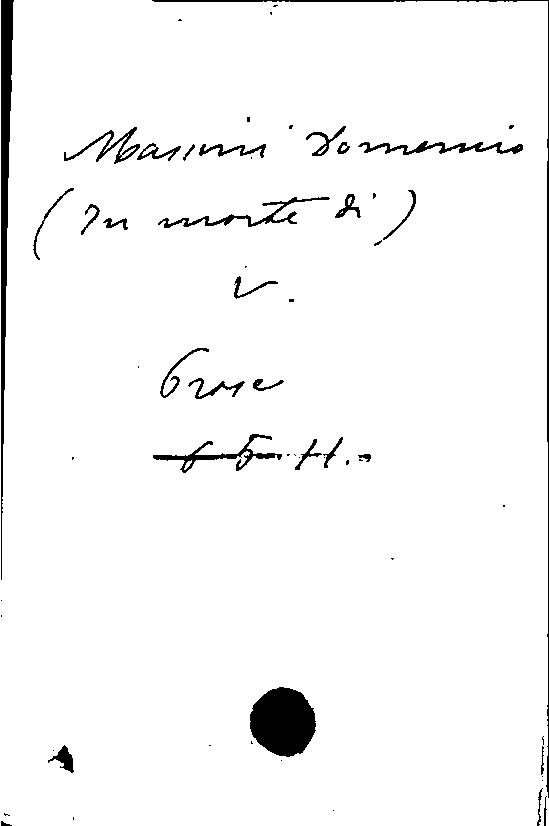 Massimi Domenico
(In morte di)
V.
Prose
6 5 H.